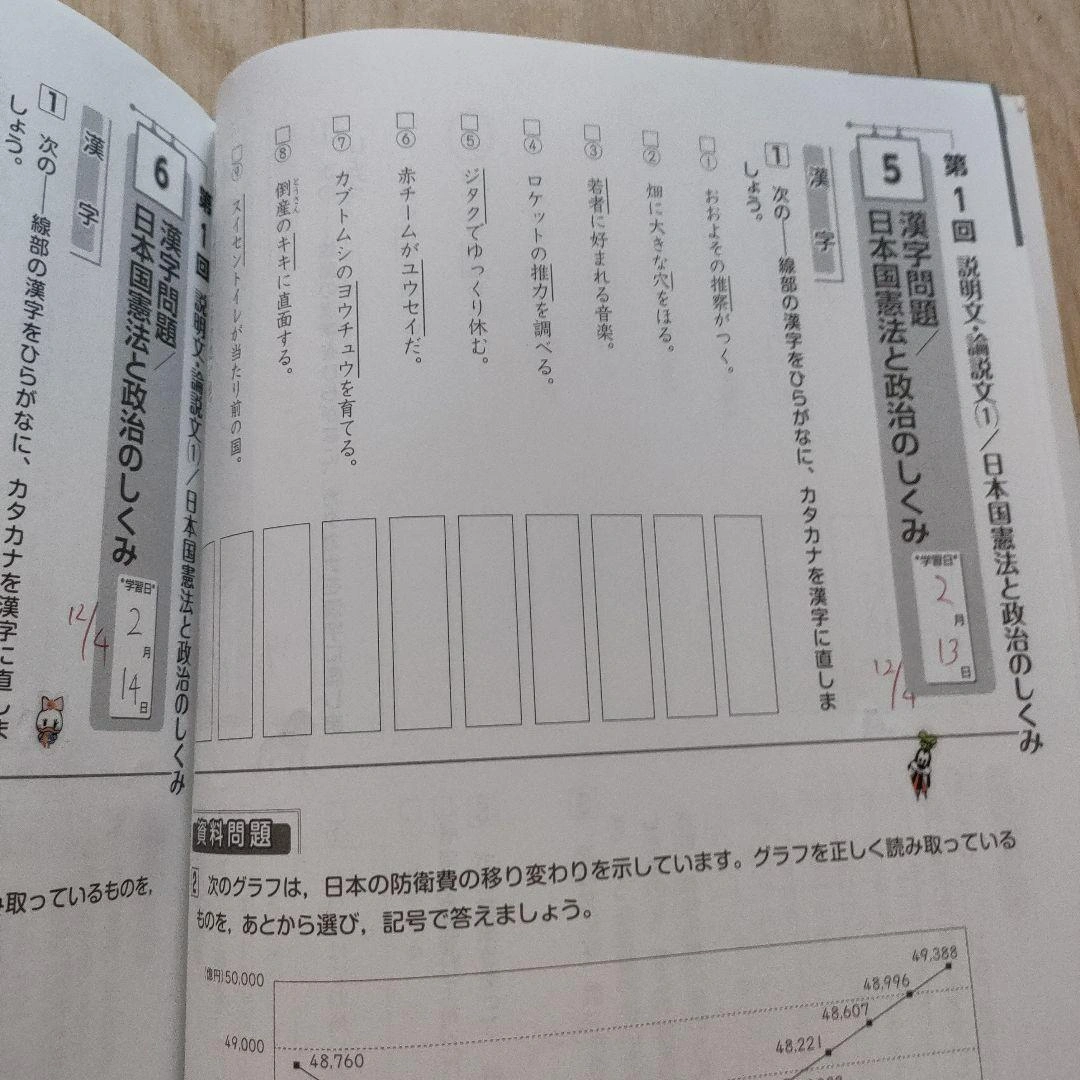 第1回 説明文・論説文①／日本国憲法と政治のしくみ
5
漢字問題／
日本国憲法と政治のしくみ
*学習日*
2月
13日
12/4
漢字
1 次の――線部の漢字をひらがなに、カタカナを漢字に直しま
しょう。
□① おおよその推察がつく。
□② 畑に大きな穴をほる。
□③ 若者に好まれる音楽。
□④ ロケットの推力を調べる。
□⑤ ジタクでゆっくり休む。
□⑥ 赤チームがユウセイだ。
□⑦ カブトムシのヨウチュウを育てる。
□⑧ 倒産のキキに直面する。
とうさん
□⑨ スイセントイレが当たり前の国。
資料問題
2 次のグラフは，日本の防衛費の移り変わりを示しています。グラフを正しく読み取っている
ものを，あとから選び，記号で答えましょう。
(億円)
50,000
49,000
48,760
48,221
48,607
48,996
49,388
第1回 説明文・論説文①／日本国憲法と政治のしくみ
6
漢字問題／
日本国憲法と政治のしくみ
*学習日*
2月
14日
12/4
漢字
1 次の――線部の漢字をひらがなに、カタカナを漢字に直しま
しょう。
み取っているものを，